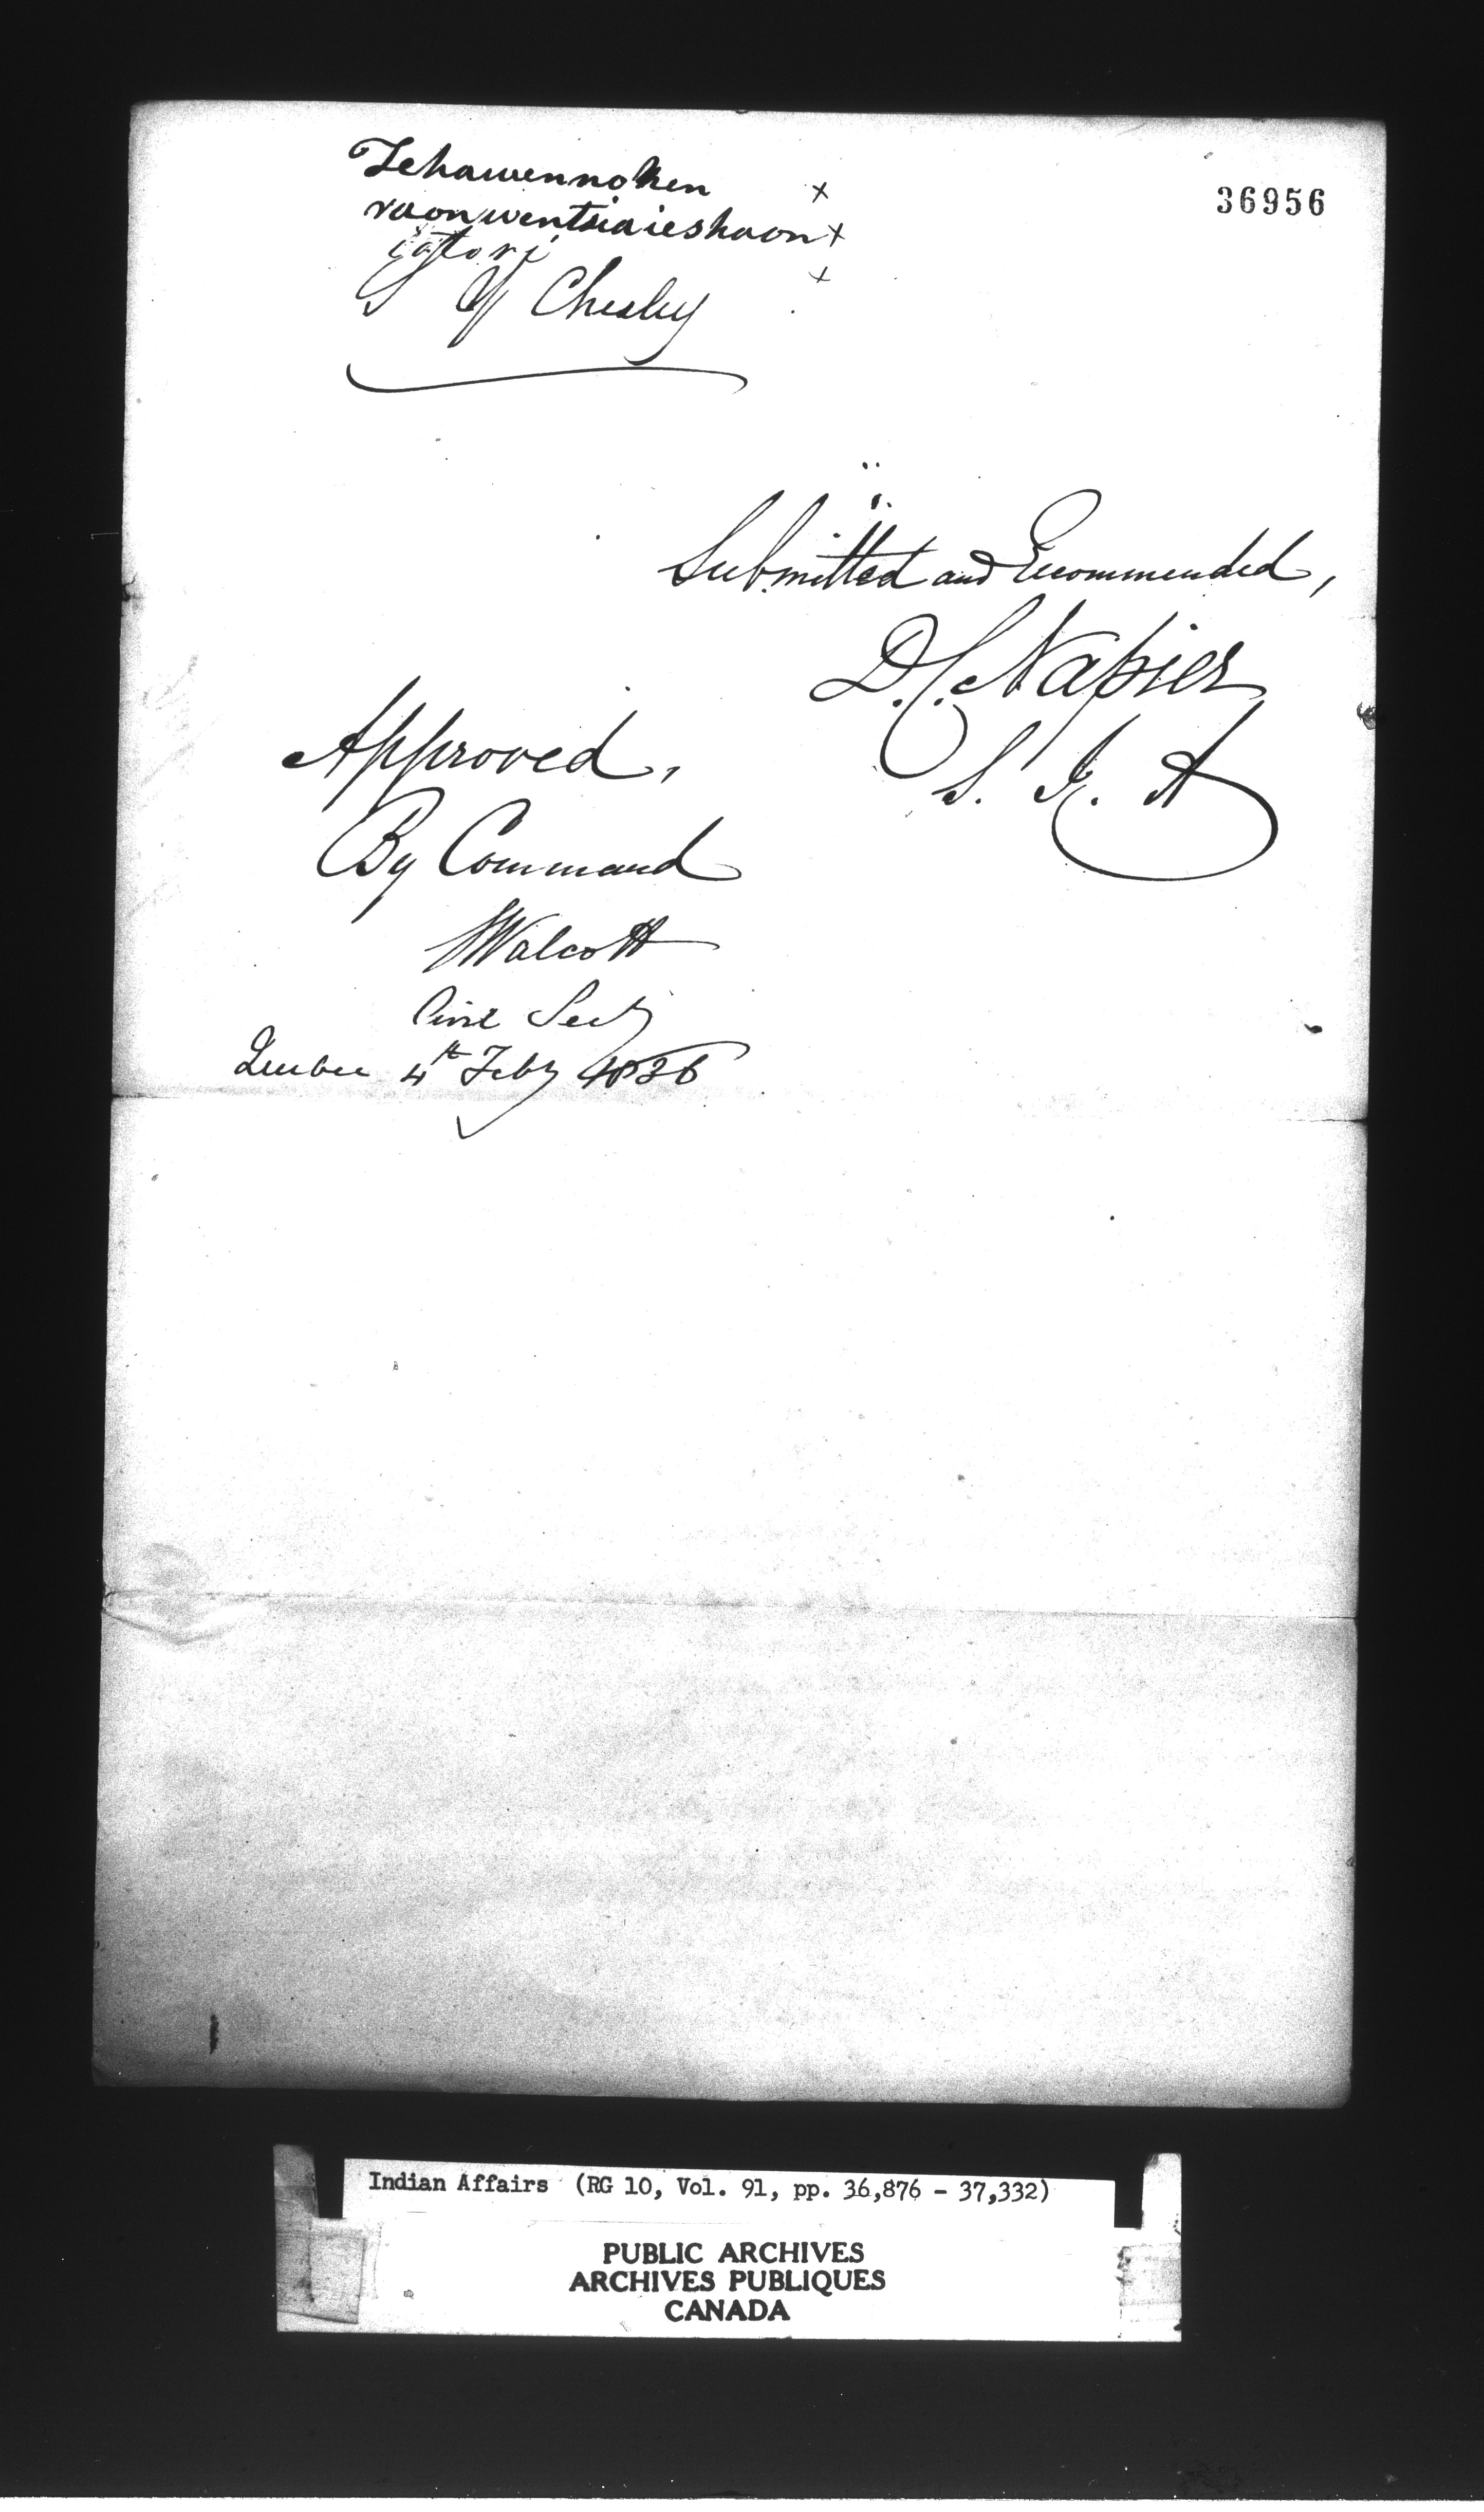 36956
Tehawennoken x
raonwentsiaieshaon x
iatori x
S Y Chesley
Submitted and Recommended,
D. C. Napier
S. I. A
Approved,
By Command
Walcott
Civil Secy
Quebec 4th Feby 1836
Indian Affairs (RG 10, Vol. 91, pp. 36,876 - 37,332)
PUBLIC ARCHIVES
ARCHIVES PUBLIQUES
CANADA